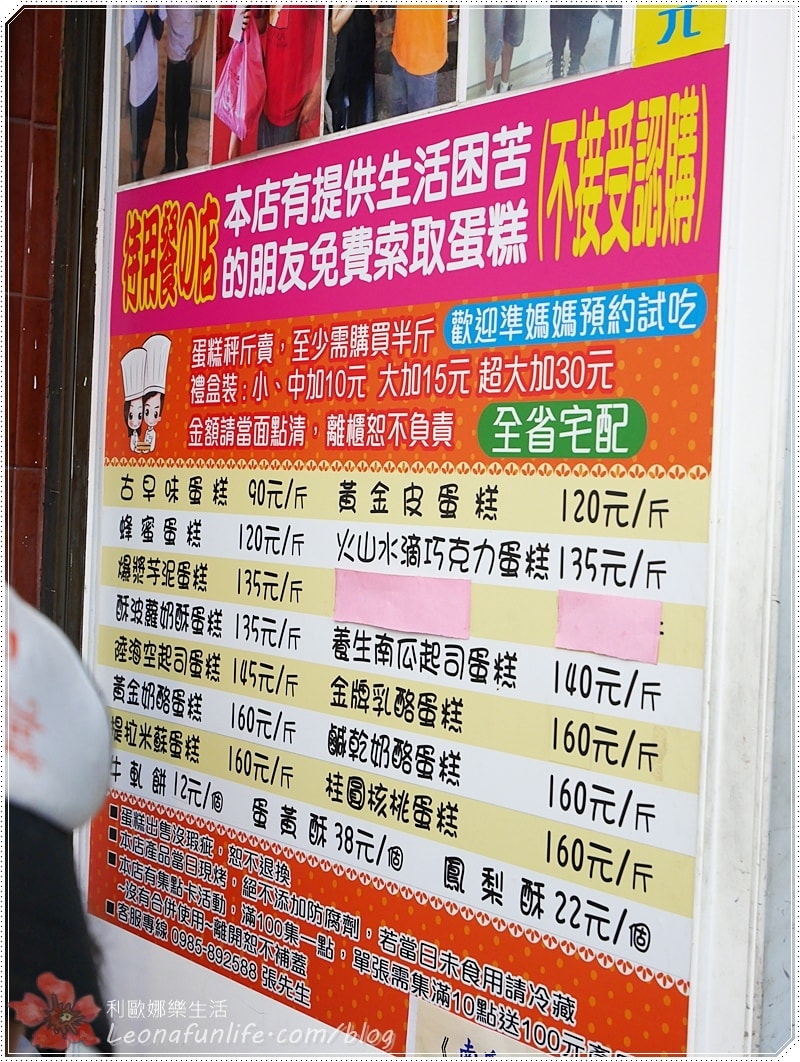 元
待用餐の店
本店有提供生活困苦
的朋友免費索取蛋糕
(不接受認購)
蛋糕秤斤賣，至少需購買半斤
歡迎準媽媽預約試吃
禮盒裝：小、中加10元 大加15元 超大加30元
金額請當面點清，離櫃恕不負責
全省宅配
古早味蛋糕 90元/斤 黃金皮蛋糕 120元/斤
蜂蜜蛋糕 120元/斤 火山水滴巧克力蛋糕 135元/斤
爆漿芋泥蛋糕 135元/斤
酥波蘿奶酥蛋糕 135元/斤 養生南瓜起司蛋糕 140元/斤
陸海空起司蛋糕 145元/斤 金牌乳酪蛋糕 160元/斤
黃金奶酪蛋糕 160元/斤 鹹乾奶酪蛋糕 160元/斤
提拉米蘇蛋糕 160元/斤 桂圓核桃蛋糕 160元/斤
牛軋餅 12元/個 蛋黃酥 38元/個 鳳梨酥 22元/個
■蛋糕出售沒瑕疵，恕不退換
■本店產品當日現烤，絕不添加防腐劑，若當日未食用請冷藏
■本店有集點卡活動，滿100集一點，單張需集滿10點送100元產
~沒有合併使用~離開恕不補蓋
■客服專線 0985-892588 張先生
利歐娜樂生活
Leonafunlife.com/blog